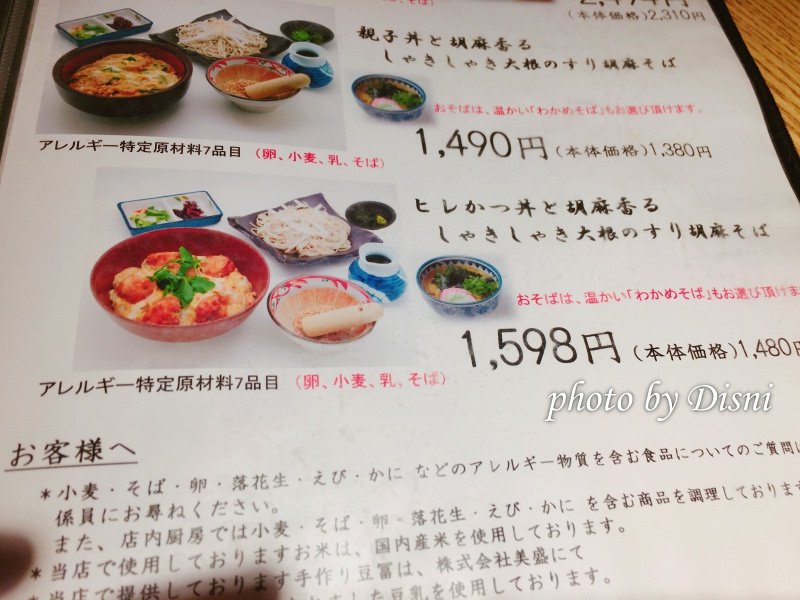 (本体価格)2,310円
親子丼と胡麻香る
しゃきしゃき大根のすり胡麻そば
おそばは、温かい「わかめそば」もお選び頂けます。
1,490円(本体価格)1,380円
アレルギー特定原材料7品目 (卵、小麦、乳、そば)
ヒレかつ丼と胡麻香る
しゃきしゃき大根のすり胡麻そば
おそばは、温かい「わかめそば」もお選び頂けま
1,598円(本体価格)1,480円
アレルギー特定原材料7品目 (卵、小麦、乳、そば)
photo by Disni
お客様へ
*小麦・そば・卵・落花生・えび・かに などのアレルギー物質を含む食品についてのご質問は
係員にお尋ねください。
また、店内厨房では小麦・そば・卵・落花生・えび・かに を含む商品を調理しております
*当店で使用しておりますお米は、国内産米を使用しております。
*当店で提供しております手作り豆冨は、株式会社美盛にて
ました豆乳を使用しております。